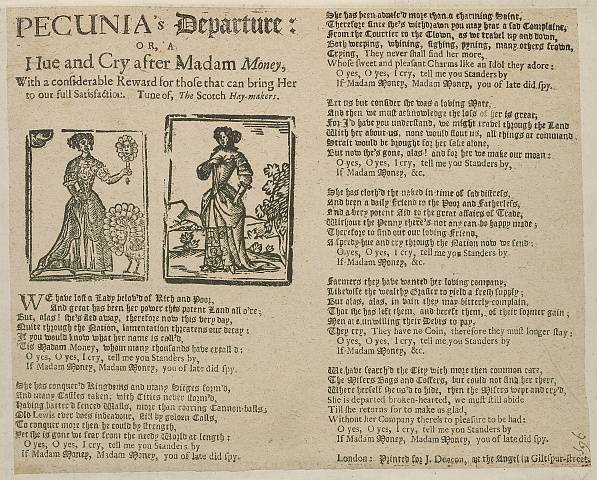 PECUNIA's Departure:
OR, A
Hue and Cry after Madam Money,
With a considerable Reward for those that can bring Her
to our full Satisfaction. Tune of, The Scotch Hay-makers.
WE have lost a Lady belov'd of Rich and Poor,
And great has been her power this potent Land all o're;
But, alas! she's fled away, therefore now this very day,
Quite through the Nation, lamentation threatens our decay:
If you would know what her name is call'd,
'Tis Madam Money, whom many thousands have enthrall'd:
O yes, O yes, I cry, tell me you Standers by,
If Madam Money, Madam Money, you of late did spy.
She has conquer'd Kingdoms and many Sieges form'd,
And many Castles taken, with Cities never storm'd,
Having batter'd fenced Walls, more than roaring Cannon-balls;
Old Lewis ever does indeavour, still by golden Calls,
To conquer more then he could by strength,
Yet she is gone we fear from the needy World at length:
O yes, O yes, I cry, tell me you Standers by
If Madam Money, Madam Money, you of late did spy.
She has been advise'd more than a charming Saint,
Therefore since she's withdrawn you may hear a sad Complaint,
From the Courtier to the Clown, as we travel up and down,
Both weeping, whining, sighing, pyning, many others frown,
Crying, They never shall find her more,
Whose sweet and pleasant Charms like an Idol they adore:
O yes, O yes, I cry, tell me you Standers by
If Madam Money, Madam Money, you of late did spy.
Let us but consider she was a loving Mate,
And then we must acknowledge the loss of her is great;
For I'd have you understand, we might travel through the Land
With her about us, none would flout us, all things at command
Strait would be brought for her sake alone,
But now she's gone, alas! and for her we make our moan:
O yes, O yes, I cry, tell me you Standers by,
If Madam Money, &c.
She has cloth'd the naked in time of sad distress,
And been a daily Friend to the Poor and Fatherless,
And a very potent Aid to the great affairs of Trade,
Without the Penny there's not any can be happy made;
Therefore to find out our loving Friend,
A speedy hue and cry through the Nation now we send:
O yes, O yes, I cry, tell me you Standers by
If Madam Money, &c.
Farmers they have wanted her loving company;
Likewise the wealthy Grasier to yield a fresh supply;
But alas, alas, in vain they may bitterly complain,
That she has left them, and bereft them, of their former gain;
Men are unwilling their Debts to pay,
They cry, They have no Coin, therefore they must longer stay:
O yes, O yes, I cry, tell me you Standers by
If Madam Money, &c.
We have search'd the City with more then common care,
The Misers Bags and Coffers, but could not find her there,
Where herself she us'd to hide, then the Misers wept and cry'd,
She is departed broken-hearted, we must still abide
Till she returns for to make us glad,
Without her Company there's no pleasure to be had:
O yes, O yes, I cry, tell me you Standers by
If Madam Money, Madam Money, you of late did spy.
London: Printed for J. Deacon, at the Angel in Giltspur-street.